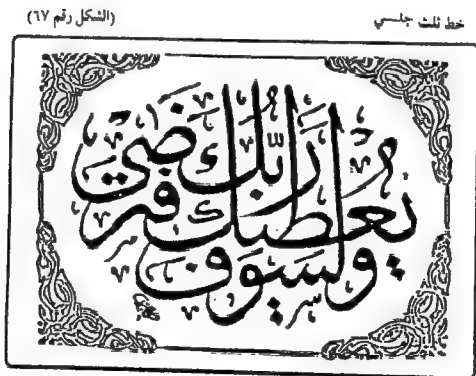 خط ثلث جلي (الشكل رقم ٦٧)
ولسوف يعطيك ربك فترضى